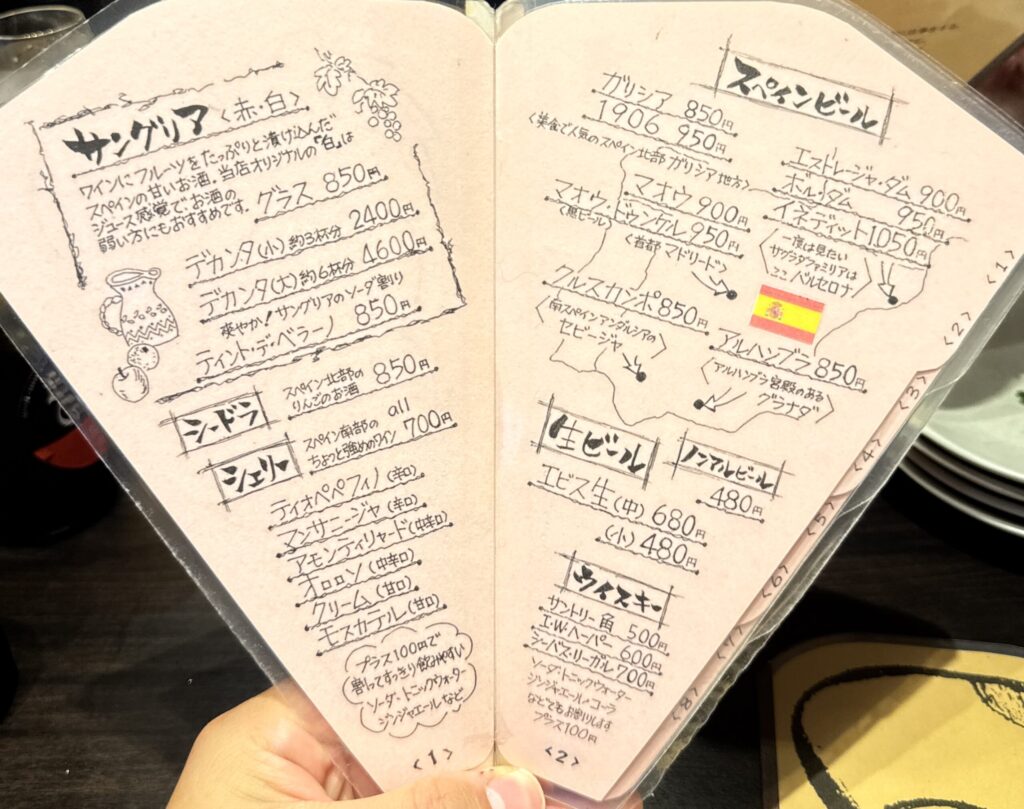 サングリア〈赤・白〉
ワインにフルーツをたっぷりと漬け込んだ
スペインの甘いお酒。当店オリジナルの「白」は
ジュース感覚で、お酒の
弱い方にもおすすめです。
グラス 850円
デカンタ(小)約3杯分 2400円
デカンタ(大)約6杯分 4600円
爽やか!サングリアのソーダ割り
ティント・デ・ベラーノ 850円
シードラ
スペイン北部の
りんごのお酒
850円
シェリー
スペイン南部の
ちょっと強めのワイン
all
700円
ティオペペフィノ(辛口)
マンサニージャ(辛口)
アモンティリャード(中辛口)
オロロソ(中辛口)
クリーム(甘口)
モスカテル(甘口)
プラス100円で
割ってすっきり飲みやすい
ソーダ・トニックウォーター
ジンジャエールなど
〈1〉
スペインビール
ガリシア 850円
1906 950円
〈美食で人気のスペイン北部ガリシア地方〉
エストレージャ・ダム 900円
ボル・ダム 950円
イネディット 1,050円
〈一度は見たい
サグラダファミリアは
ここバルセロナ〉
マオウ 900円
マオウ・ドゥンケル 950円
〈黒ビール〉
〈首都マドリード〉
クルスカンポ 850円
〈南スペインアンダルシアの
セビージャ〉
アルハンブラ 850円
〈アルハンブラ宮殿のある
グラナダ〉
生ビール
エビス生(中) 680円
(小) 480円
ノンアルビール
480円
ウイスキー
サントリー角 500円
I.W.ハーパー 600円
シーバス・リーガル 700円
ソーダ・トニックウォーター
ジンジャエール・コーラ
などでもお割りします
プラス100円
〈2〉
〈1〉
〈2〉
〈3〉
〈4〉
〈5〉
〈6〉
〈7〉
〈8〉